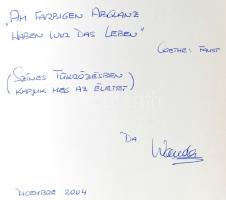 „AM FARBIGEN ABGLANZ
HABEN WIR DAS LEBEN"
GOETHE: FAUST
(SZÍNES TÜKRÖZÉSBEN
KAPJUK MEG AZ ÉLETET)
DA
Wanda
DICEMBRE 2004